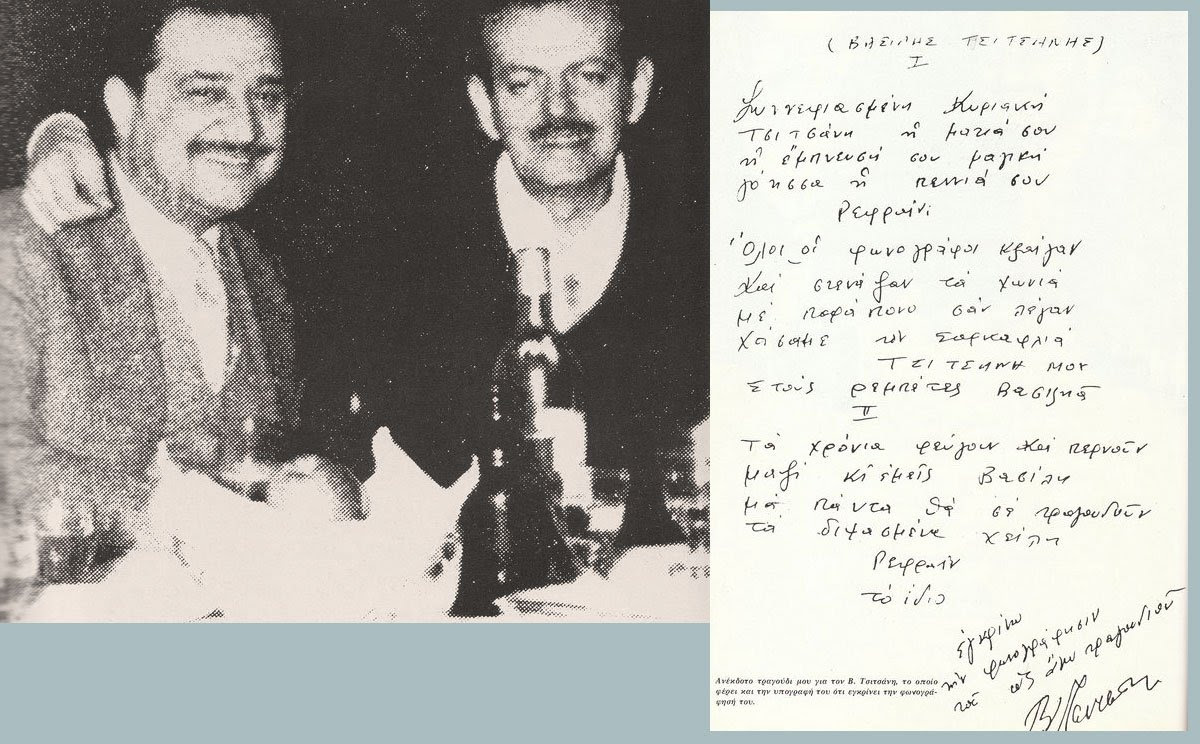 (ΒΑΣΙΛΗΣ ΤΣΙΤΣΑΝΗΣ)
I
Συννεφιασμένη Κυριακή
Τσιτσάνη ἡ ματιά σου
ἡ ἔμπνευσή σου μαγική
γόησσα ἡ πεννιά σου
Ρεφραίν:
Ὅλοι οἱ φωνογράφοι κλαίγαν
Καί στενάζαν τά χωνιά
μέ παράπονο σάν λέγαν
χάσαμε τήν Σορκαφλιά
ΤΣΙΤΣΑΝΗ μου
Στούς ρεμπέτες Βασιληᾶ
II
Τά χρόνια φεύγουν καί περνοῦν
μαζί κι ἐμεῖς Βασίλη
μά πάντα θά σέ τραγουδοῦν
τά διψασμένα χείλη
Ρεφραίν
τό ἴδιο
ἐγκρίνω
τήν φωνογράφησιν
τοῦ ὡς ἄνω τραγουδιοῦ
Ανέκδοτο τραγούδι μου για τον Β. Τσιτσάνη, το οποίο
φέρει και την υπογραφή του ότι εγκρίνει την φωνογρά-
φησή του.